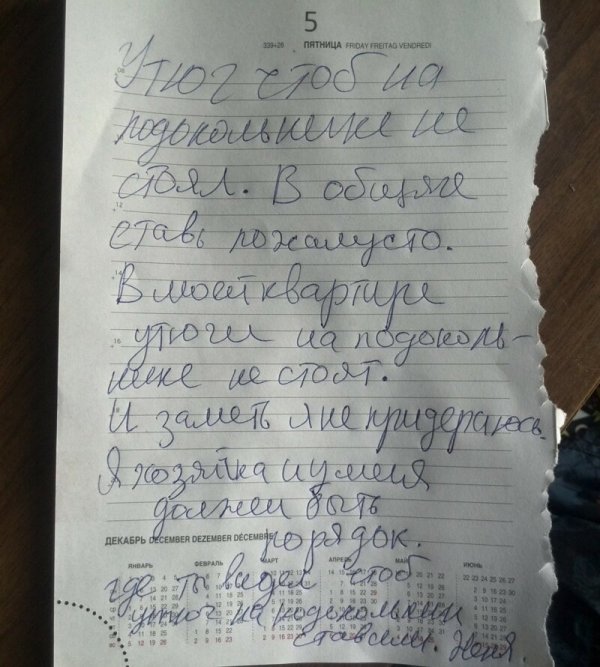 5
339+26 ПЯТНИЦА FRIDAY FREITAG VENDREDI
08
Утюг чтоб на
подокольнике не
стоял. В общяге
12
ставь пожалусто.
14
В моей квартире
16
утюги на подоколь-
нике не стоят.
И заметь я не придераюсь.
Я хозяйка и у меня
должен быть
порядок.
ДЕКАБРЬ DECEMBER DEZEMBER DÉCEMBRE
ЯНВАРЬ ФЕВРАЛЬ МАРТ АПРЕЛЬ МАЙ ИЮНЬ
где ты видел чтоб
утюг на подокольник
ставили. Женя.